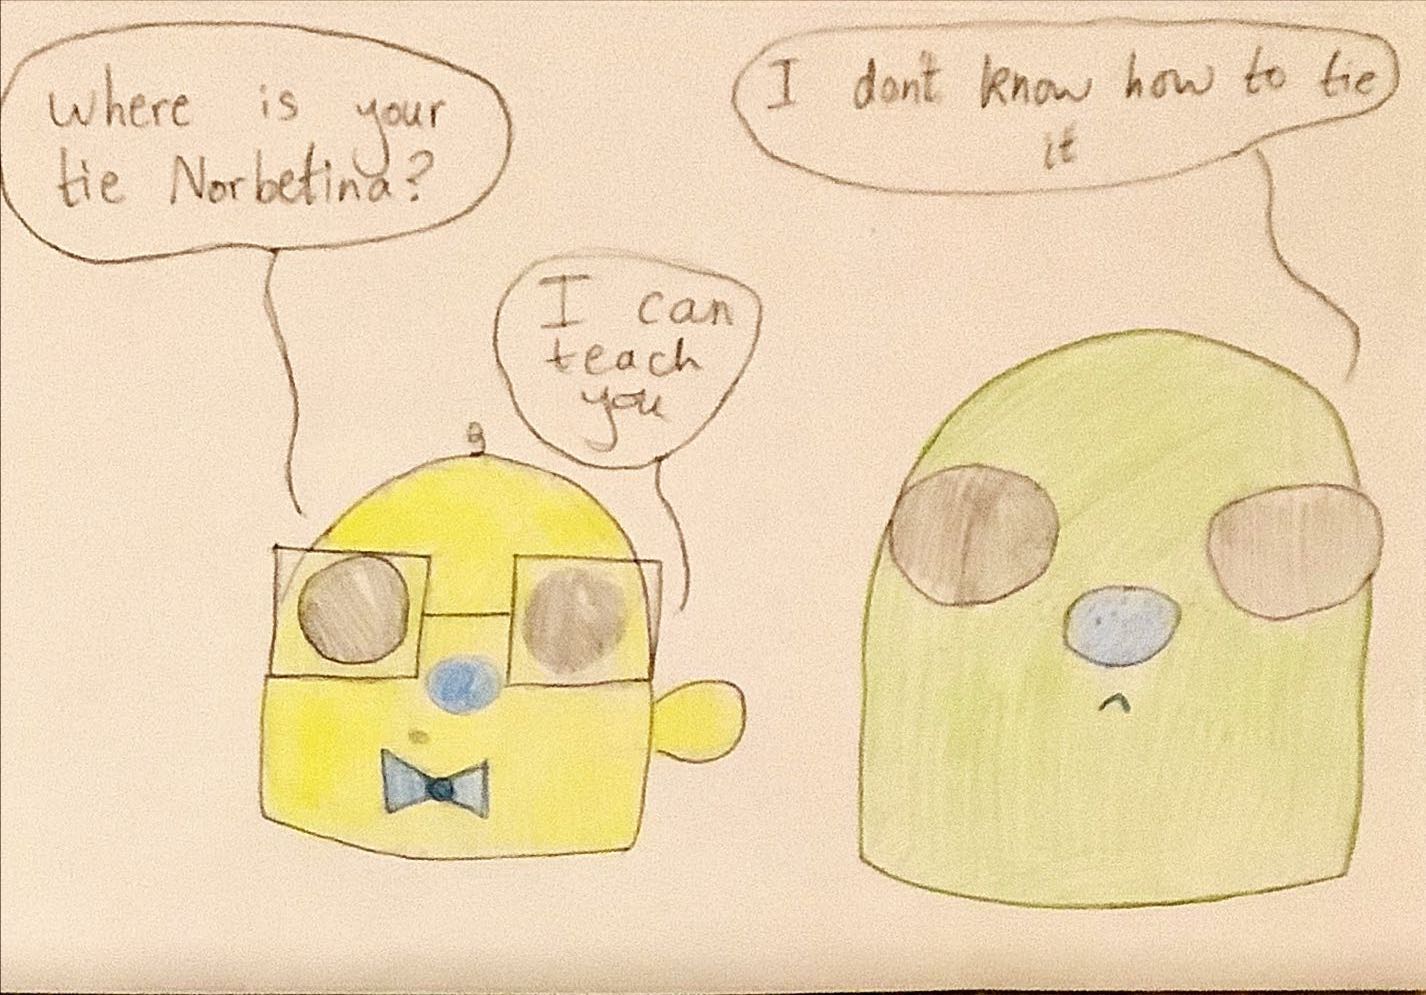 Where is your
tie Norbetina?
I don't know how to tie
it
I can
teach
you